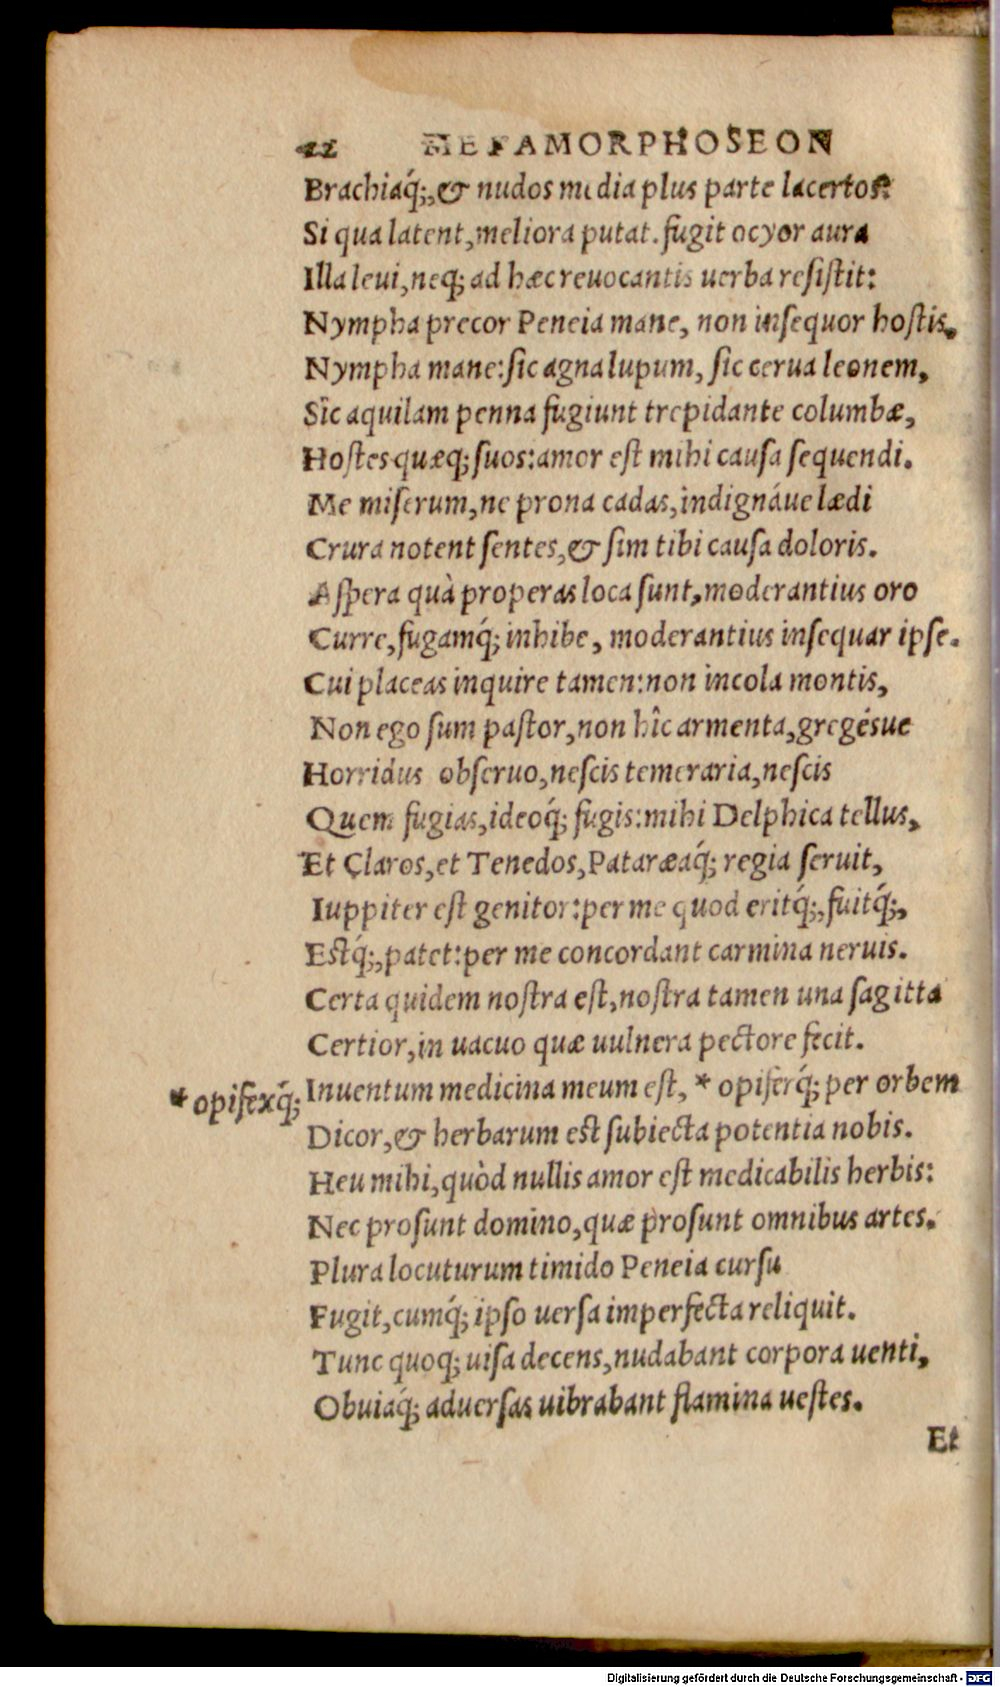 22 METAMORPHOSEON
Brachiaq́;, & nudos media plus parte lacertos:
Si qua latent, meliora putat. fugit ocyor aura
Illa leui, neq; ad hæc reuocantis uerba resistit:
Nympha precor Peneia mane, non insequor hostis.
Nympha mane: sic agna lupum, sic cerua leonem,
Sic aquilam penna fugiunt trepidante columbæ,
Hostes quæq; suos: amor est mihi causa sequendi.
Me miserum, ne prona cadas, indignáue lædi
Crura notent sentes, & sim tibi causa doloris.
Aspera quà properas loca sunt, moderantius oro
Curre, fugamq́; inhibe, moderantius insequar ipse.
Cui placeas inquire tamen: non incola montis,
Non ego sum pastor, non hîc armenta, gregésue
Horridus obseruo, nescis temeraria, nescis
Quem fugias, ideoq́; fugis: mihi Delphica tellus,
Et Claros, et Tenedos, Pataræaq́; regia seruit,
Iuppiter est genitor: per me quod eritq́;, fuitq́;,
Estq́;, patet: per me concordant carmina neruis.
Certa quidem nostra est, nostra tamen una sagitta
Certior, in uacuo quæ uulnera pectore fecit.
* opifexq́; Inuentum medicina meum est, * opiferq́; per orbem
Dicor, & herbarum est subiecta potentia nobis.
Heu mihi, quòd nullis amor est medicabilis herbis:
Nec prosunt domino, quæ prosunt omnibus artes.
Plura locuturum timido Peneia cursu
Fugit, cumq́; ipso uersa imperfecta reliquit.
Tunc quoq; uisa decens, nudabant corpora uenti,
Obuiaq́; aduersas uibrabant flamina uestes.
Et
Digitalisierung gefördert durch die Deutsche Forschungsgemeinschaft - DFG